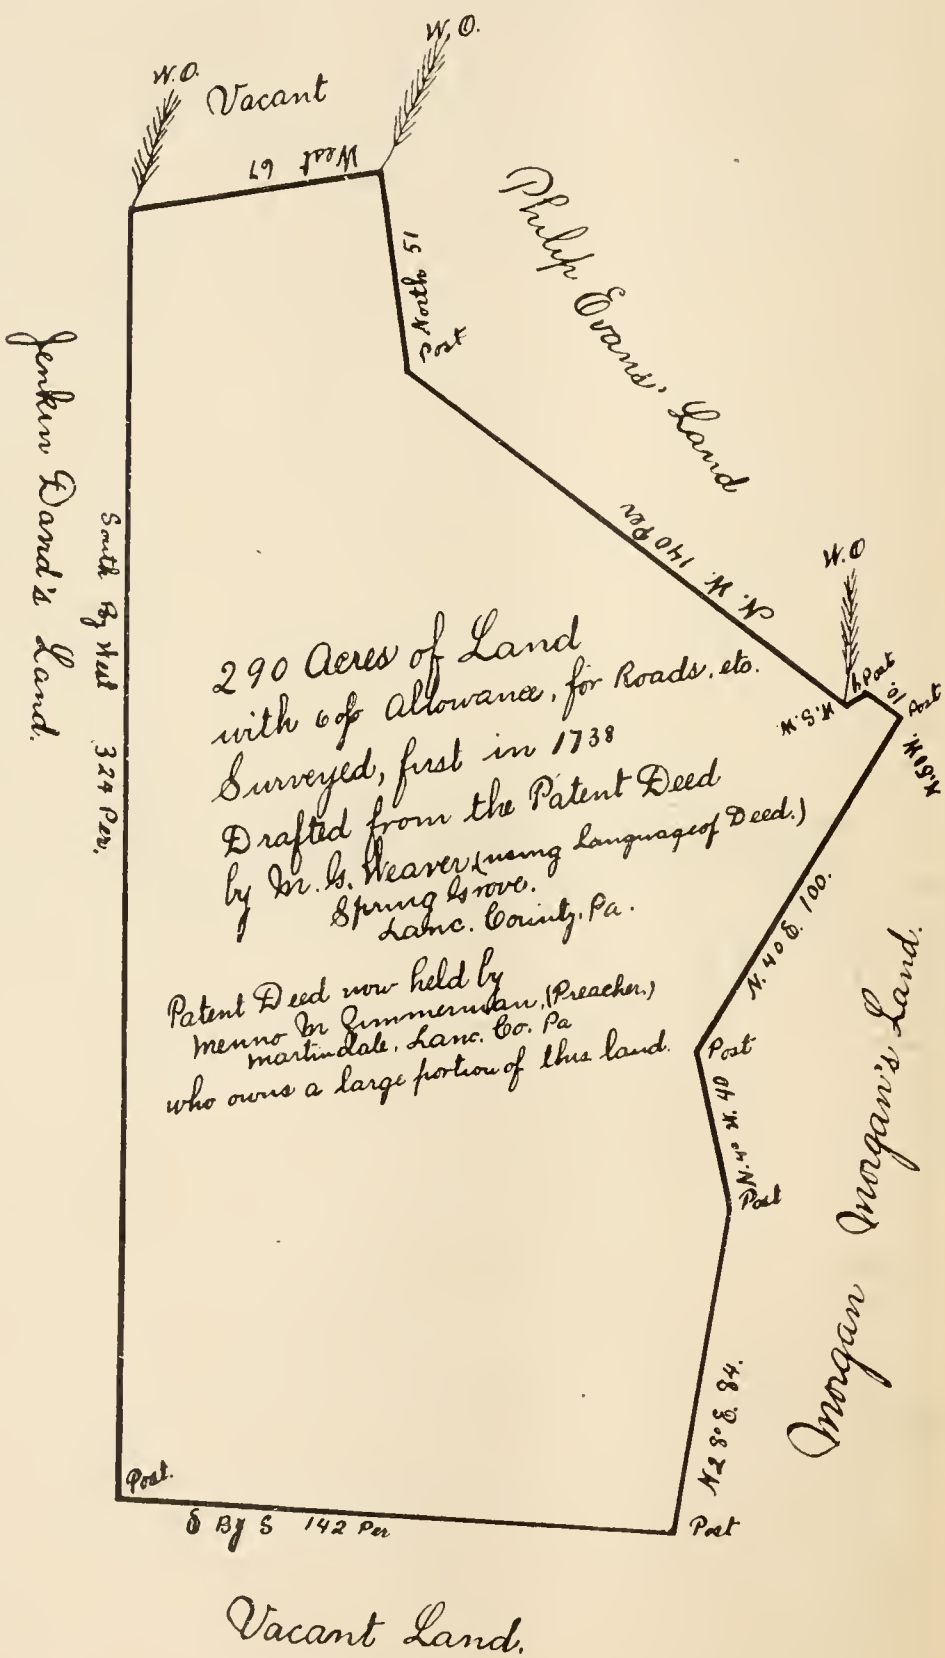 W.O.
W.O.
Vacant
West 67
North 51
Post
Philip Evans' Land
N. W. 140 Per
W.O
Post
10
Post
W.S.W.
N. 40 E. 100.
Post
N. 40 W. 40
Post
N 28° E. 84.
Post
Morgan Morgan's Land.
Jenkin David's Land.
South By West 324 Per.
290 Acres of Land
with 6 % Allowance, for Roads, etc.
Surveyed, first in 1738
Drafted from the Patent Deed
by M. G. Weaver (using Language of Deed.)
Spring Grove.
Lanc. County, Pa.
Patent Deed now held by
Menno M Zimmerman, (Preacher.)
Martindale, Lanc. Co. Pa
who owns a large portion of this land.
Post.
E By S 142 Per
Vacant Land.